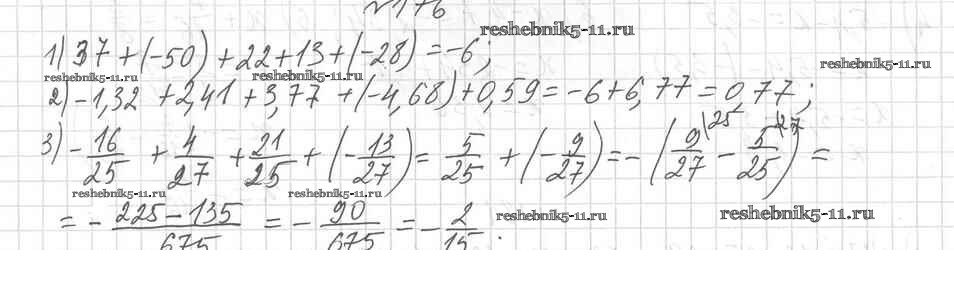 №1+6
reshebnik5-11.ru
1) 37 + (-50) + 22 + 13 + (-28) = -6;
reshebnik5-11.ru reshebnik5-11.ru reshebnik5-11.ru
2) -1,32 + 2,41 + 3,77 + (-4,68) + 0,59 = -6 + 6,77 = 0,77;
3) - 16/25 + 4/27 + 21/25 + (- 13/27) = 5/25 + (- 9/27) = - (9/27 |25 - 5/25 |27) =
reshebnik5-11.ru reshebnik5-11.ru
= - 225 - 135/675 = - 90/675 = - 2/15.
reshebnik5-11.ru reshebnik5-11.ru